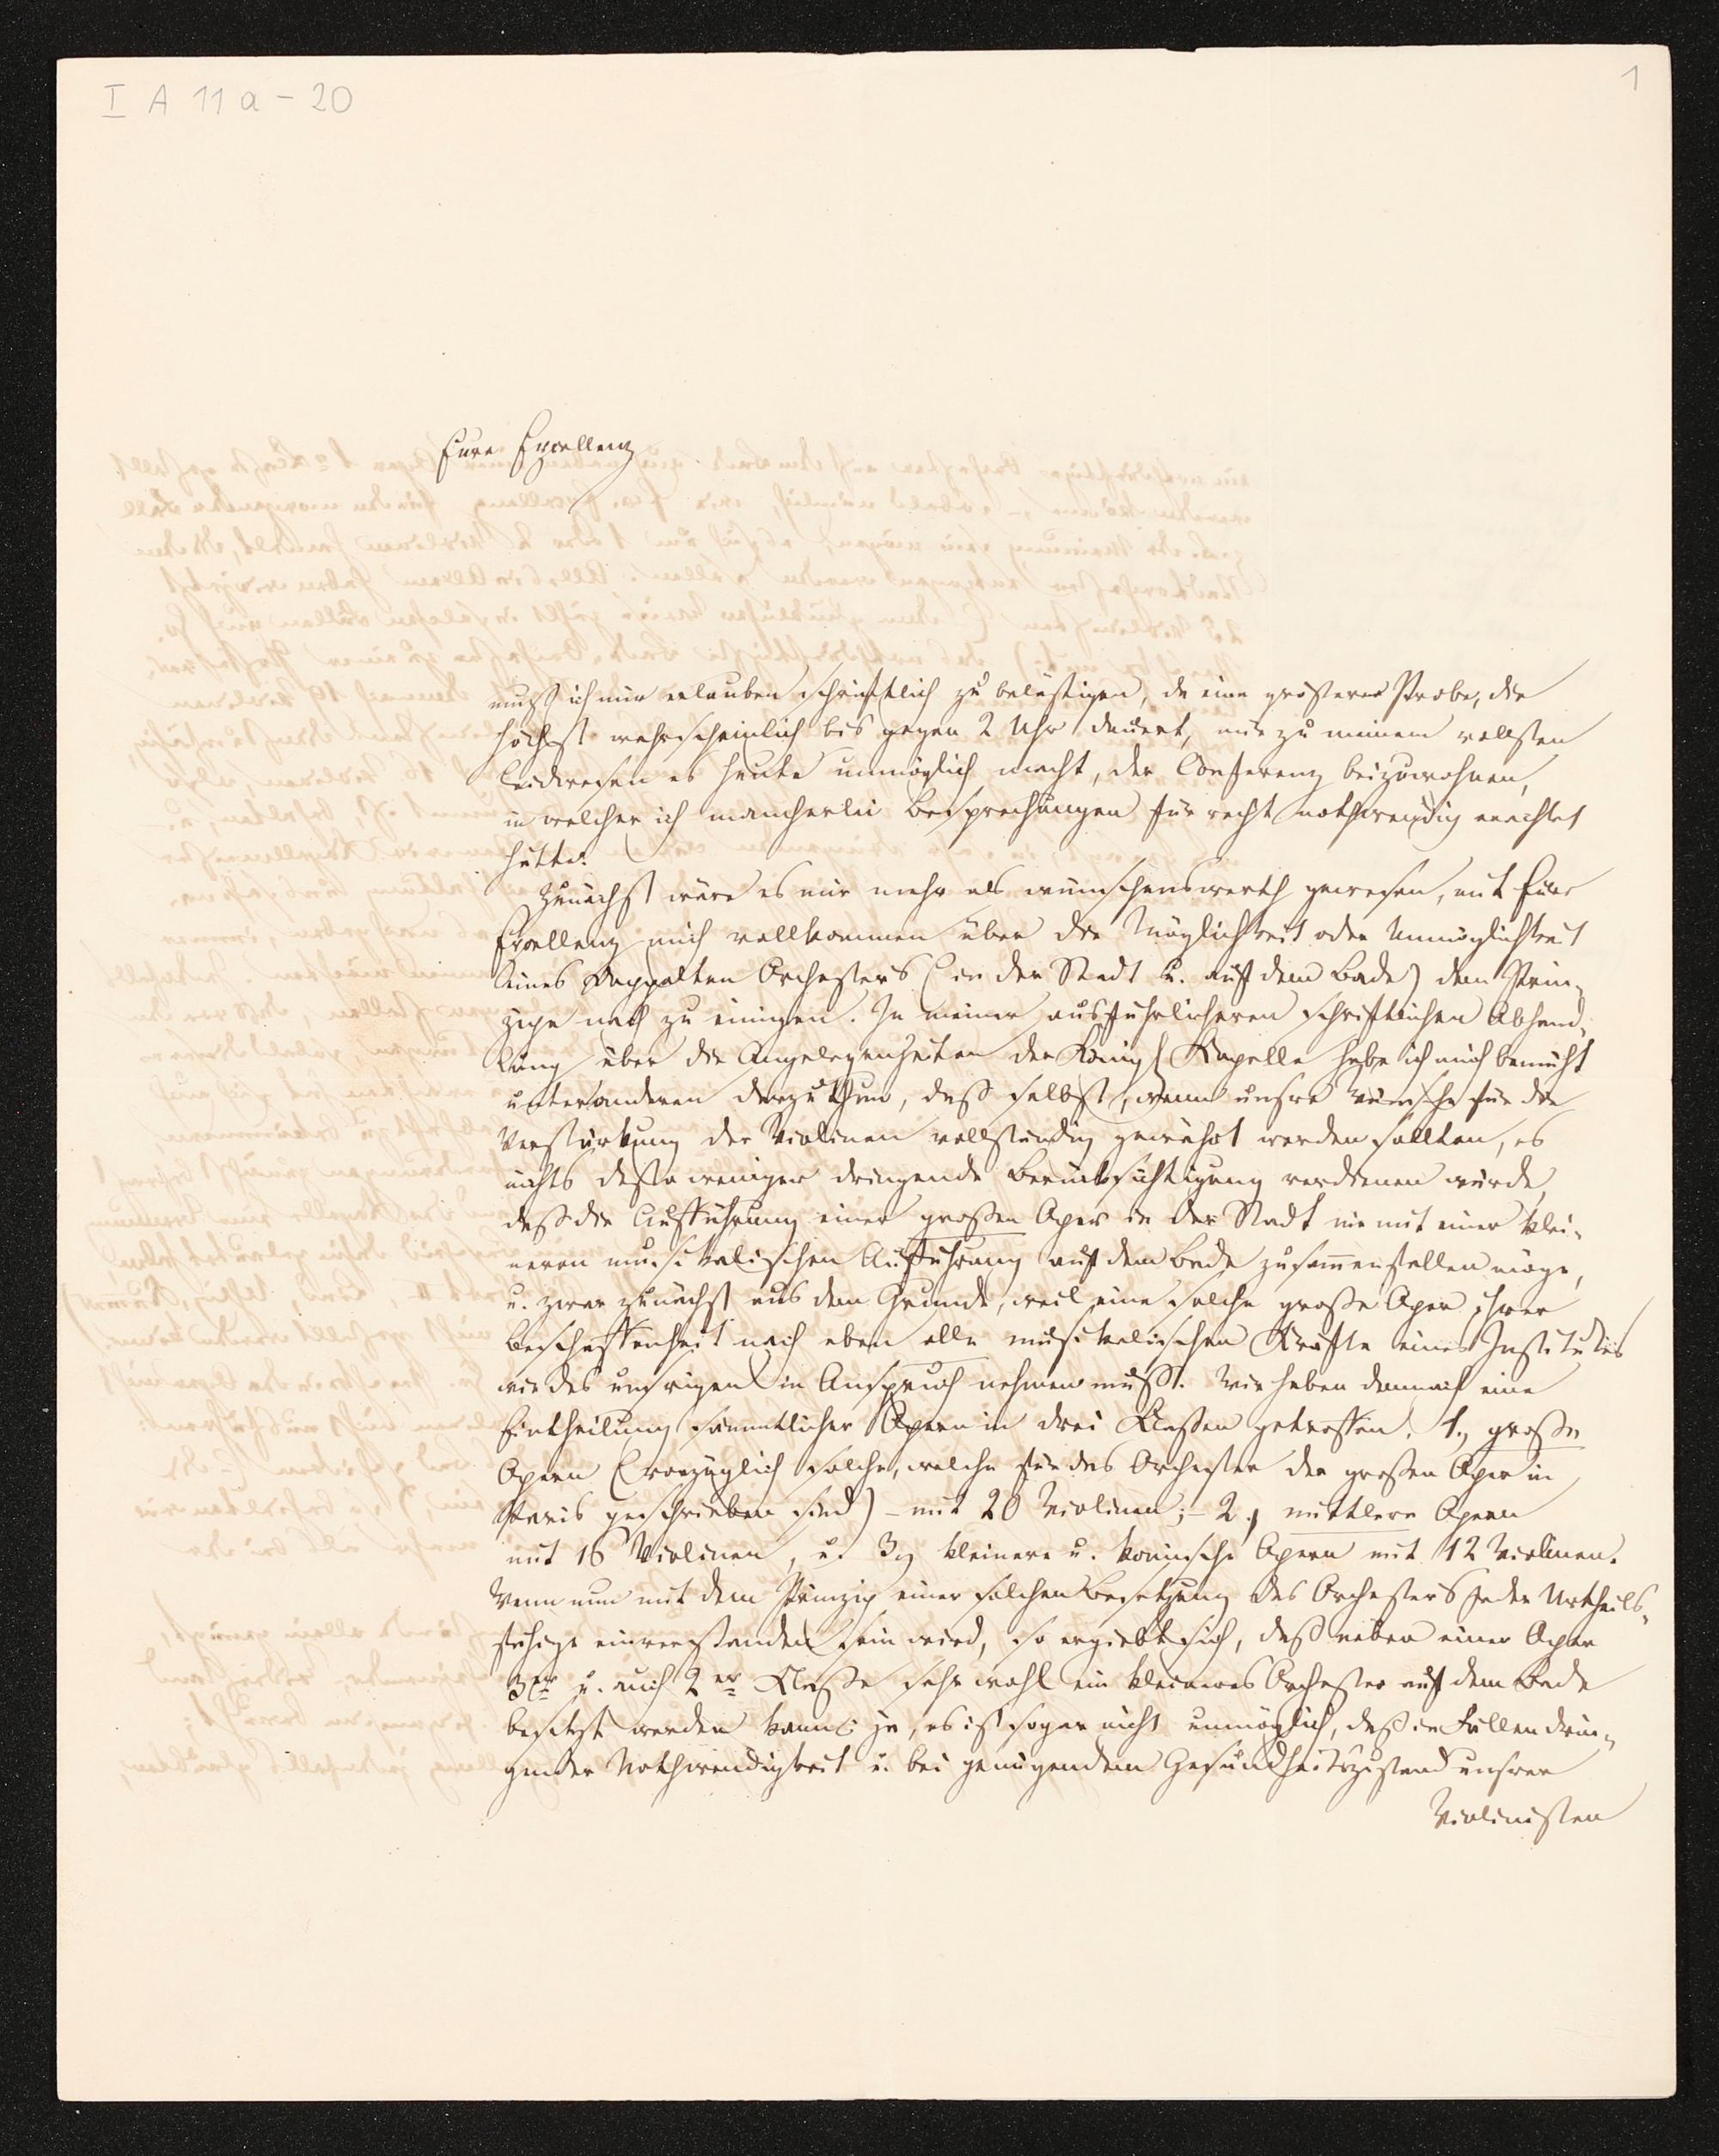 I A 11 a - 20
1
Eure Excellenz
muß ich mir erlauben schriftlich zu belästigen, da eine größere Probe, die
höchst wahrscheinlich bis gegen 2 Uhr dauert, mir zu meinem vollsten
Leidwesen es heute unmöglich macht, der Conferenz beizuwohnen,
in welcher ich mancherlei Besprechungen für recht nothwendig erachtet
hätte.
Zunächst wäre es mir mehr als wünschenswerth gewesen, mit Eurer
Excellenz mich vollkommen über die Möglichkeit oder Unmöglichkeit
eines doppelten Orchesters (in der Stadt u. auf dem Bade) dem Prin-
zipe nach zu einigen. In meiner ausführlicheren schriftlichen Abhand-
lung über die Angelegenheiten der Königl Kapelle habe ich mich bemüht
unter anderen darzuthun, daß selbst, wenn unsre Wünsche für die
Verstärkung der Violinen vollständig gewährt werden sollten, es
nichts desto weniger dringende Berücksichtigung verdienen würde,
daß die Aufführung einer großen Oper in der Stadt nie mit einer klei-
neren musikalischen Aufführung auf dem Bade zusammenfallen möge,
u. zwar zunächst aus dem Grunde, weil eine solche große Oper ihrer
Beschaffenheit nach eben alle musikalischen Kräfte eines Institutes
wie des unsrigen in Anspruch nehmen muß. Wir haben demnach eine
Eintheilung sämmtlicher Opern in drei Klassen getroffen. 1., große
Opern (vorzüglich solche, welche für das Orchester der großen Oper in
Paris geschrieben sind) - mit 20 Violinen; - 2., mittlere Opern
mit 16 Violinen, u. 3., kleinere u. komische Opern mit 12 Violinen.
Wenn nun mit dem Prinzip einer solchen Besetzung des Orchesters jeder Urtheils-
fähige einverstanden sein wird, so ergiebt sich, daß neben einer Oper
3er u. auch 2er Klasse sehr wohl ein kleineres Orchester auf dem Bade
besetzt werden kann: ja, es ist sogar nicht unmöglich, daß in Fällen drin-
gender Nothwendigkeit u. bei genügendem Gesundheitszustand unsrer
Violinisten